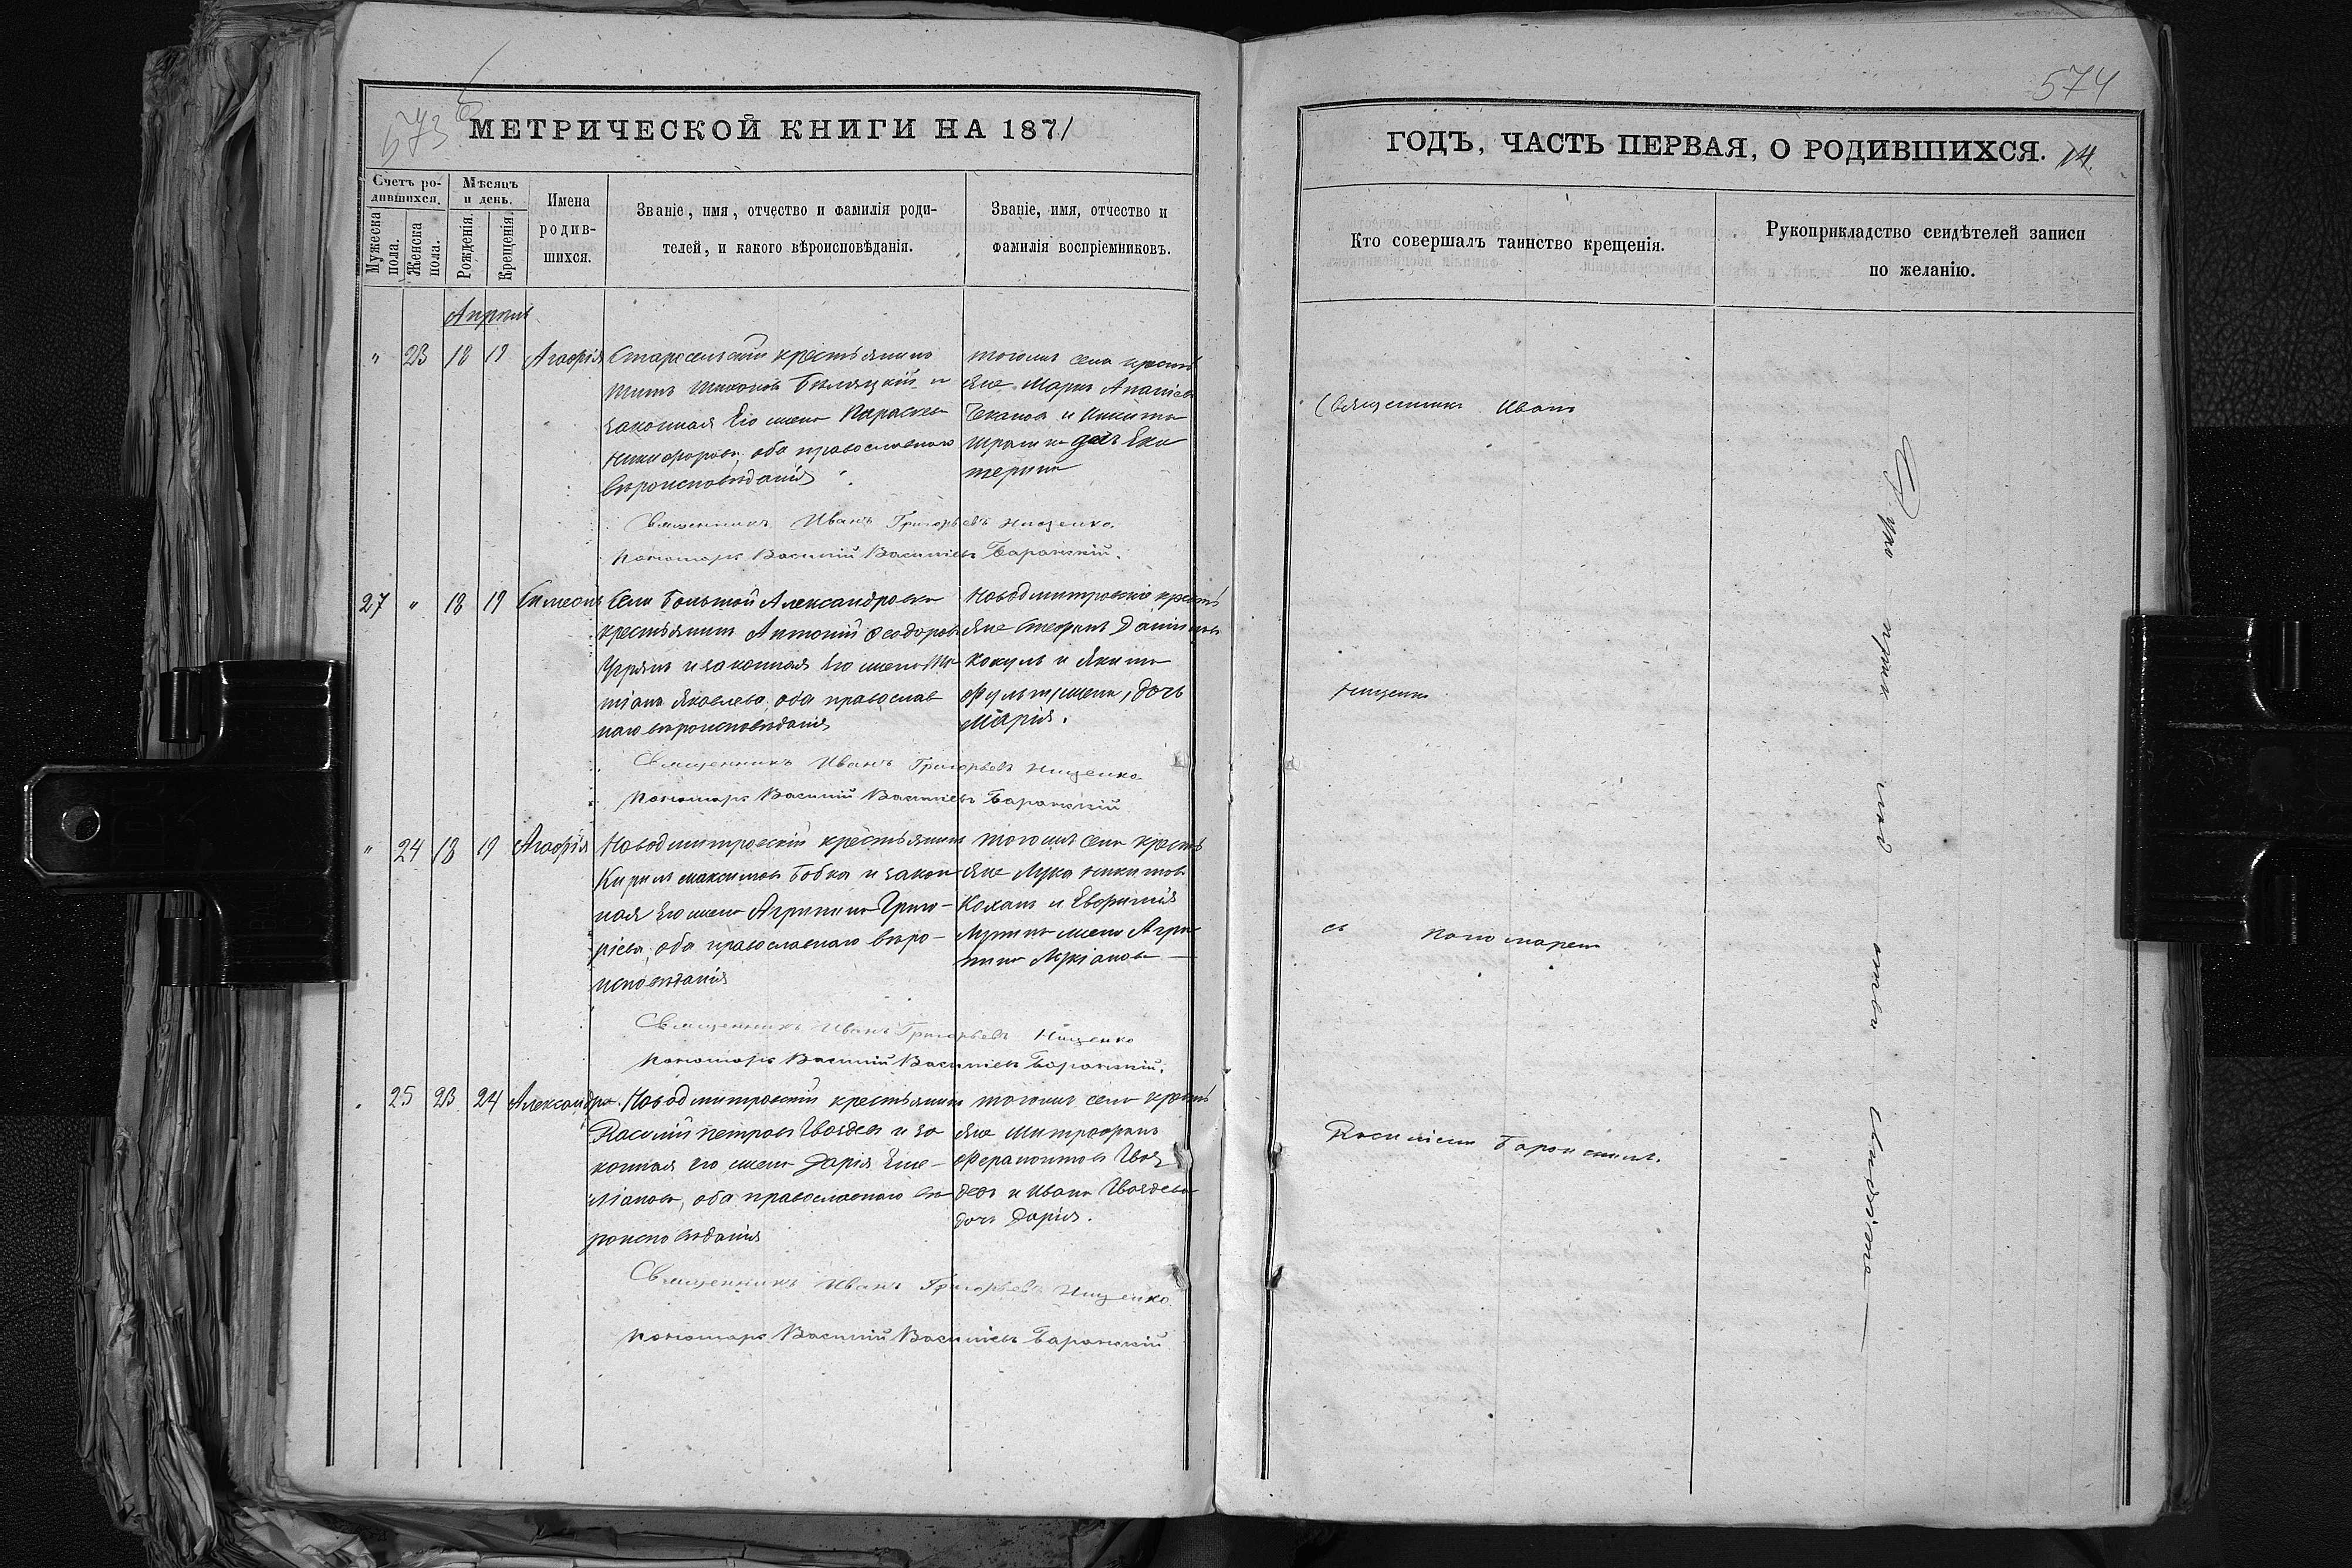 573
МЕТРИЧЕСКОЙ КНИГИ НА 1871
Счетъ ро-
дившихся.
Мужеска
пола.
Женска
пола.
Мѣсяцъ
и день.
Рожденія.
Крещенія.
Имена
родив-
шихся.
Званіе, имя, отчество и фамилія роди-
телей, и какого вѣроисповѣданія.
Званіе, имя, отчество и
фамилія воспріемниковъ.
Апрѣль
" 23 18 19 Агафія
Старосельскій крестьянинъ
Титъ Тихоновъ Билецкій и
законная Его жена Параскева
Никифорова, оба православнаго
вѣроисповѣданія
тогожъ села кресть
яне Марко Ананіевъ
и Никиты
дочь Ека
терина
Священникъ Иванъ Григорьевъ Нищенко.
Пономарь Василій Васильевъ Баранскій.
27 " 18 19 Симеонъ
Села Большой Александровки
крестьянинъ Антоній Феодоровъ
Угрянъ и законная Его жена Та
тіана Яковлева, оба православ
наго вѣроисповѣданія
Новодмитровскіе кресть
яне Стефанъ Даниловъ
Кокуль и Якима
дочь
Марія.
Священникъ Иванъ Григорьевъ Нищенко
Пономарь Василій Васильевъ Баранскій
" 24 18 19 Агафія
Новодмитровскій крестьянинъ
Кирилъ Максимовъ Бобка и закон
ная Его жена Агрипина Григо-
ріева, оба православнаго вѣро-
исповѣданія
тогожъ села кресть
яне Лука Никитовъ
Коханъ и Евфимія
жена Агри
пина Лукіанова
Священникъ Иванъ Григорьевъ Нищенко
Пономарь Василій Васильевъ Баранскій.
" 25 23 24 Александра
Новодмитровскій крестьянинъ
Василій Петровъ Гвоздевъ и за
конная его жена Дарія Еме-
ліанова, оба православнаго вѣ
роисповѣданія
тогожъ села кресть
яне Митрофанъ
Ферапонтовъ Гвоз
девъ и Ивана Гвоздева
дочь Дарія.
Священникъ Иванъ Григорьевъ Нищенко
Пономарь Василій Васильевъ Баранскій
574
ГОДЪ, ЧАСТЬ ПЕРВАЯ, О РОДИВШИХСЯ. 14.
Кто совершалъ таинство крещенія.
Рукоприкладство свидѣтелей записи
по желанію.
Священникъ Иванъ
Нищенко
съ пономаремъ
Василіемъ Баранскимъ.